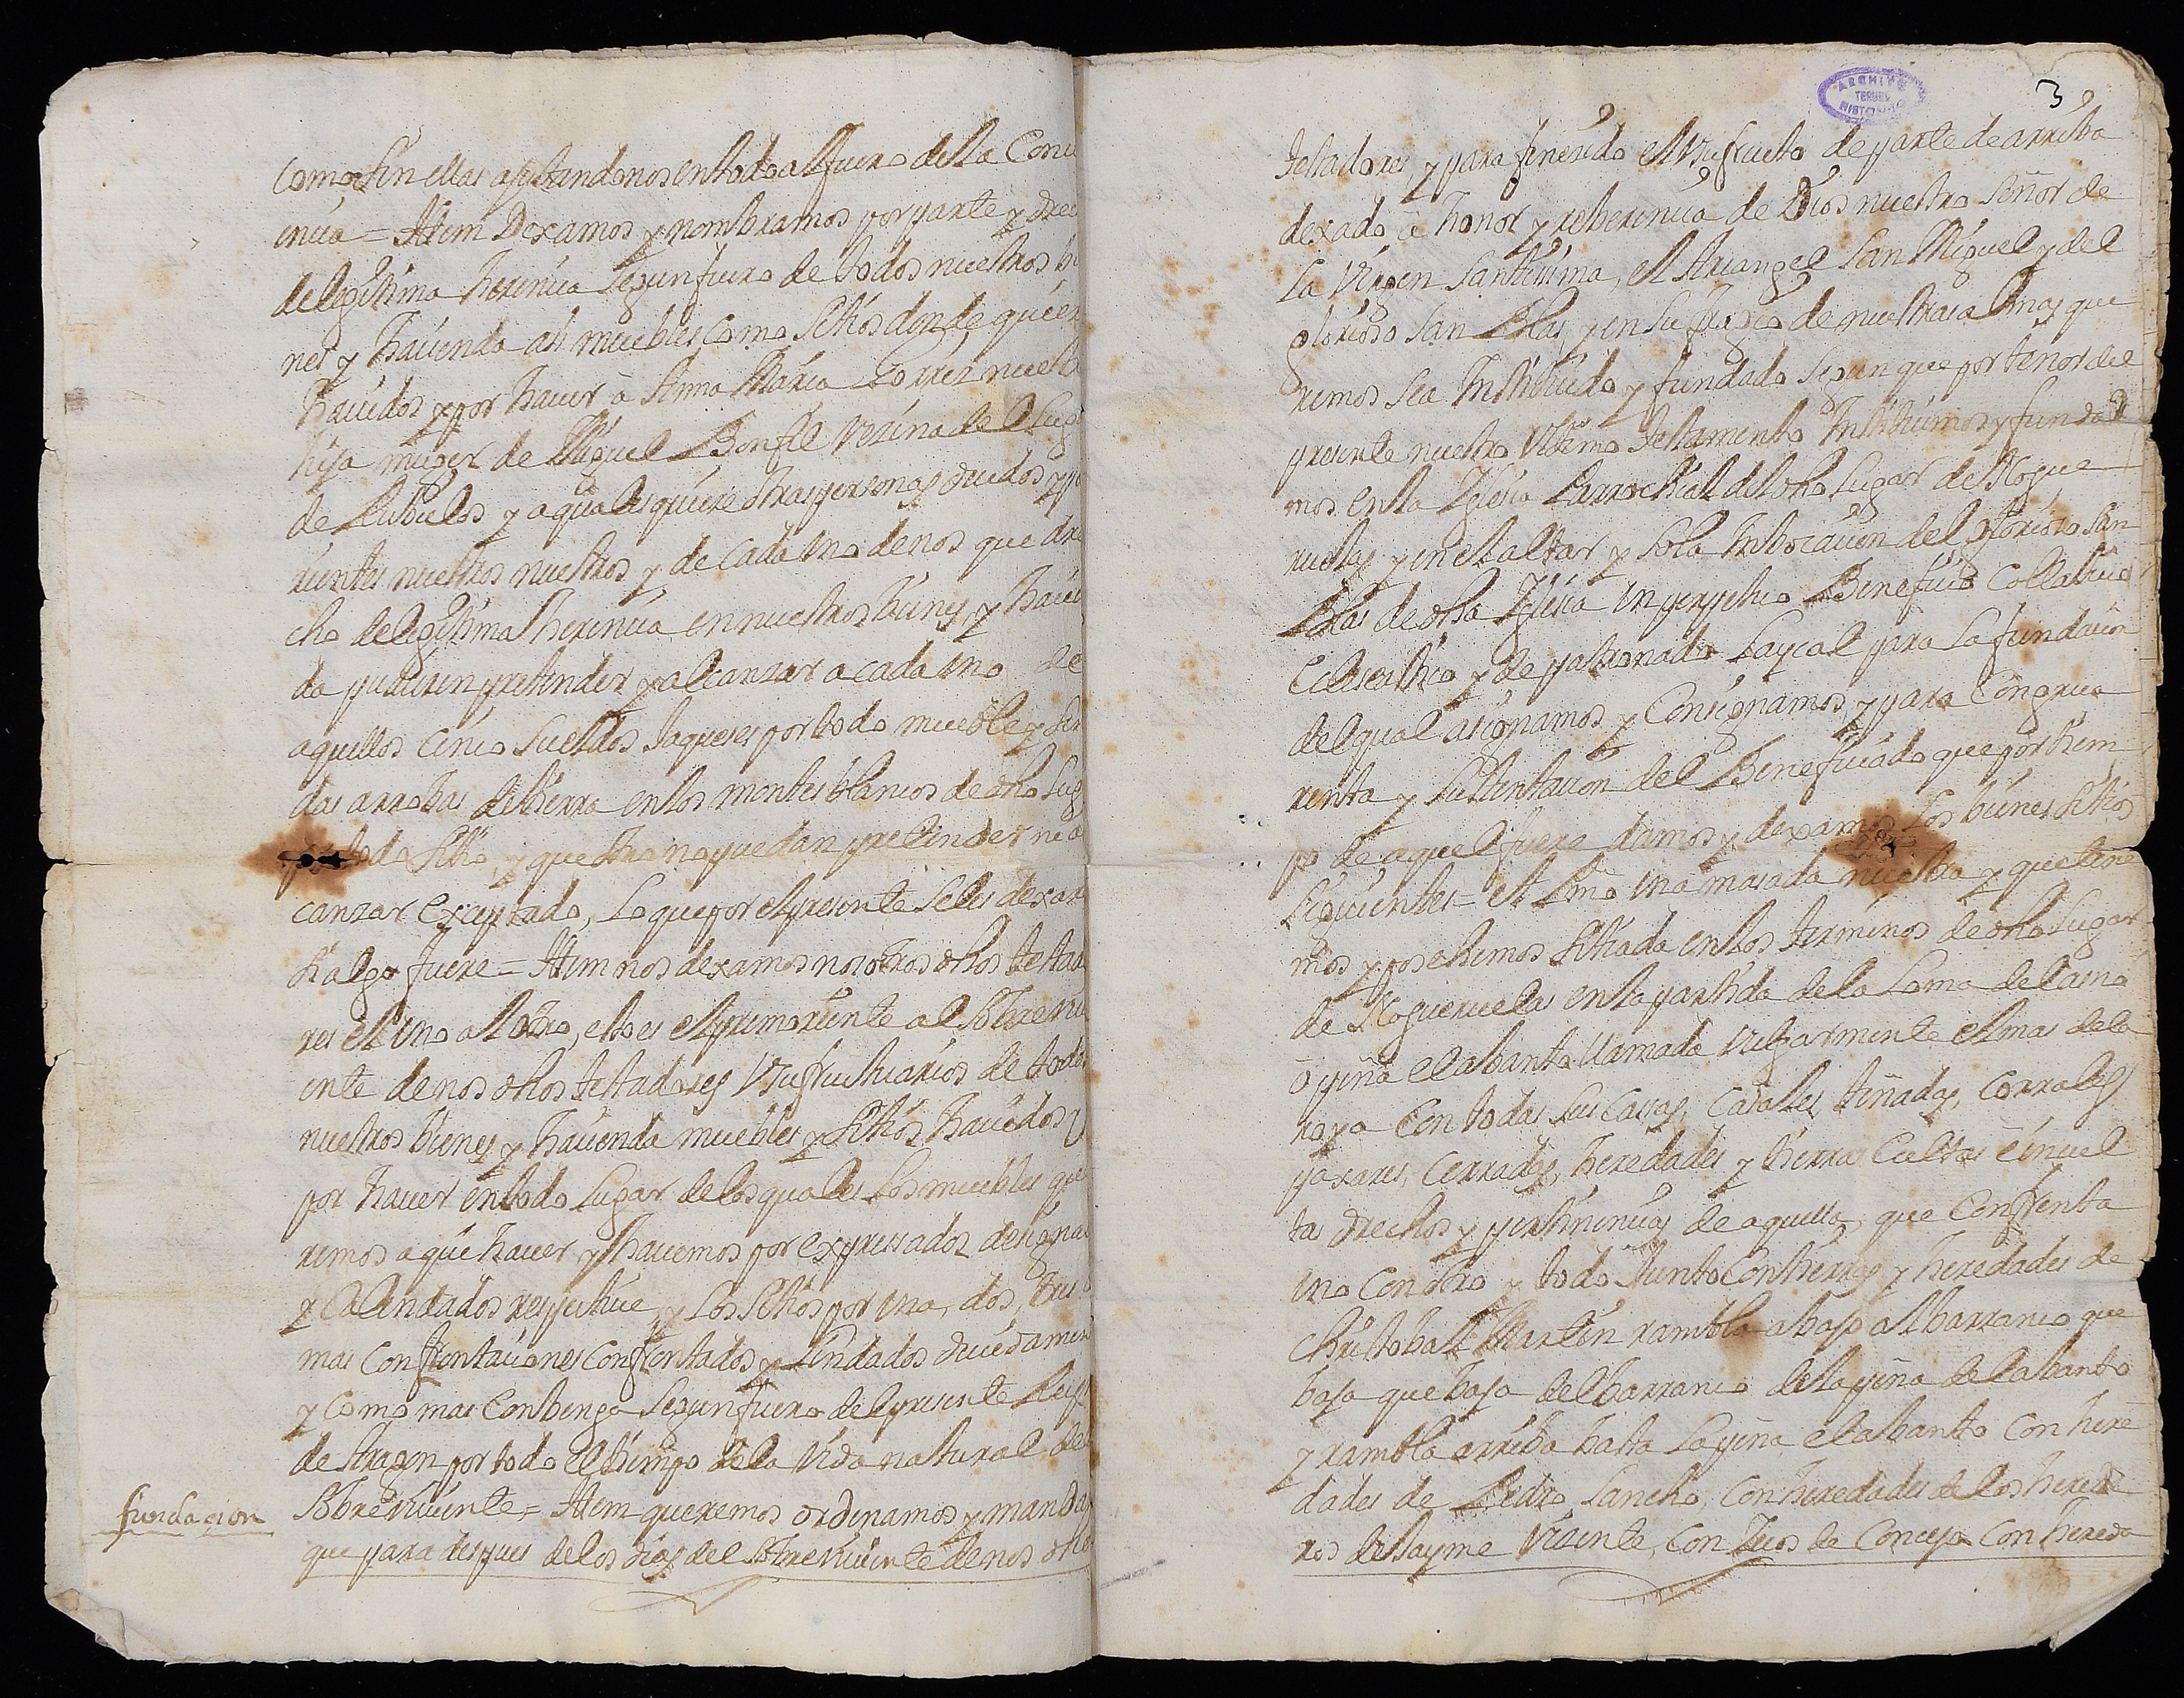 como sin ellas ajustandonos en todo al fuero de la Conci
encia = Item Dexamos y nombramos por parte y drec
de legitima herencia segun fuero de todos nuestros bi
nes y hacienda asi muebles como sitios donde quier
havidos y por haver à Anna Maria Torrez nuest
hija muger de Miguel Bonfil vezina del Lug
de Rubielos y a qualesquiere otras personas deudos y pa
rientes nuestros nuestros y de cada uno de nos que dre
cho de legitima herencia en nuestros bienes y hacie
da pudieren pretender y alcanzar a cada uno de
aquellos cinco sueldos Jaqueses por todo mueble y sen
das arrobas de tierra en los montes blancos de dho Lug
por todo sitio, y que otro no puedan pretender ni a
canzar exceptado, lo que por el presente se les dexar
si algo fuere = Item nos dexamos nosotros dhos testad
res el uno al otro, esto es el premoriente al sobrevivi
ente de nos dhos testadores usufructuarios de todos
nuestros bienes y hacienda muebles y sitios havidos y
por haver en todo lugar de los quales los muebles que
remos aqui haver y havemos por expressados designad
y Calendados respective, y los sitios por una, dos, tres o
mas confrontaciones confrontados y lindados devidamen
y como mas convenga segun fuero del presente Rey
de Aragon por todo el tiempo de la vida natural del
fundacion
Sobreviviente = Item queremos ordenamos y manda
que para despues de los dias del Sobreviviente de nos dhos
3
ARCHIVO
TERUEL
testadores y para fenecido el usufructo de parte de arriba
dexado à honor y reberencia de Dios nuestro Señor de
la Virgen Santissima, el Arcangel San Miguel y del
glorioso San Blas, y en sufragio de nuestras almas que
remos sea Instituido y fundado segun que por tenor del
presente nuestro ultimo testamento Instituimos y funda
mos en la Iglesia Parrochial del dho Lugar de Nogue
ruelas y en el altar y so la Inbocacion del glorioso San
Blas de dha Iglesia un perpetuo Beneficio Collativo
Eclesiastico y de patronado Laycal para la fundacion
del qual asignamos y Consignamos, y para Congrua
renta y sustentacion del Beneficiado que por tiem
po de aquel fuere damos y dexamos los bienes sitios
siguientes = et Pmo una masada nuestra y que tene
mos y posehimos sitiada en los terminos de dho Lugar
de Nogueruelas en la partida de la Loma del
ò peña el abanto llamada vulgarmente el mas de la
roya con todas sus casas, casales, tiñadas, corrales
paxares, cerradas, heredades y tierras Cultas è incul
tas drechos y pertinencias de aquella, que Confrenta
uno con otro y todo Junto con tierras y heredades de
Christobal Martin rambla abajo al barranco que
baja que baja del barranco de la peña del abanto
y rambla arriba hasta la peña el abanto con here
dades de Pedro Sancho, con heredades de los herede
ros de Jayme Vicente, con de Concejo con hereda